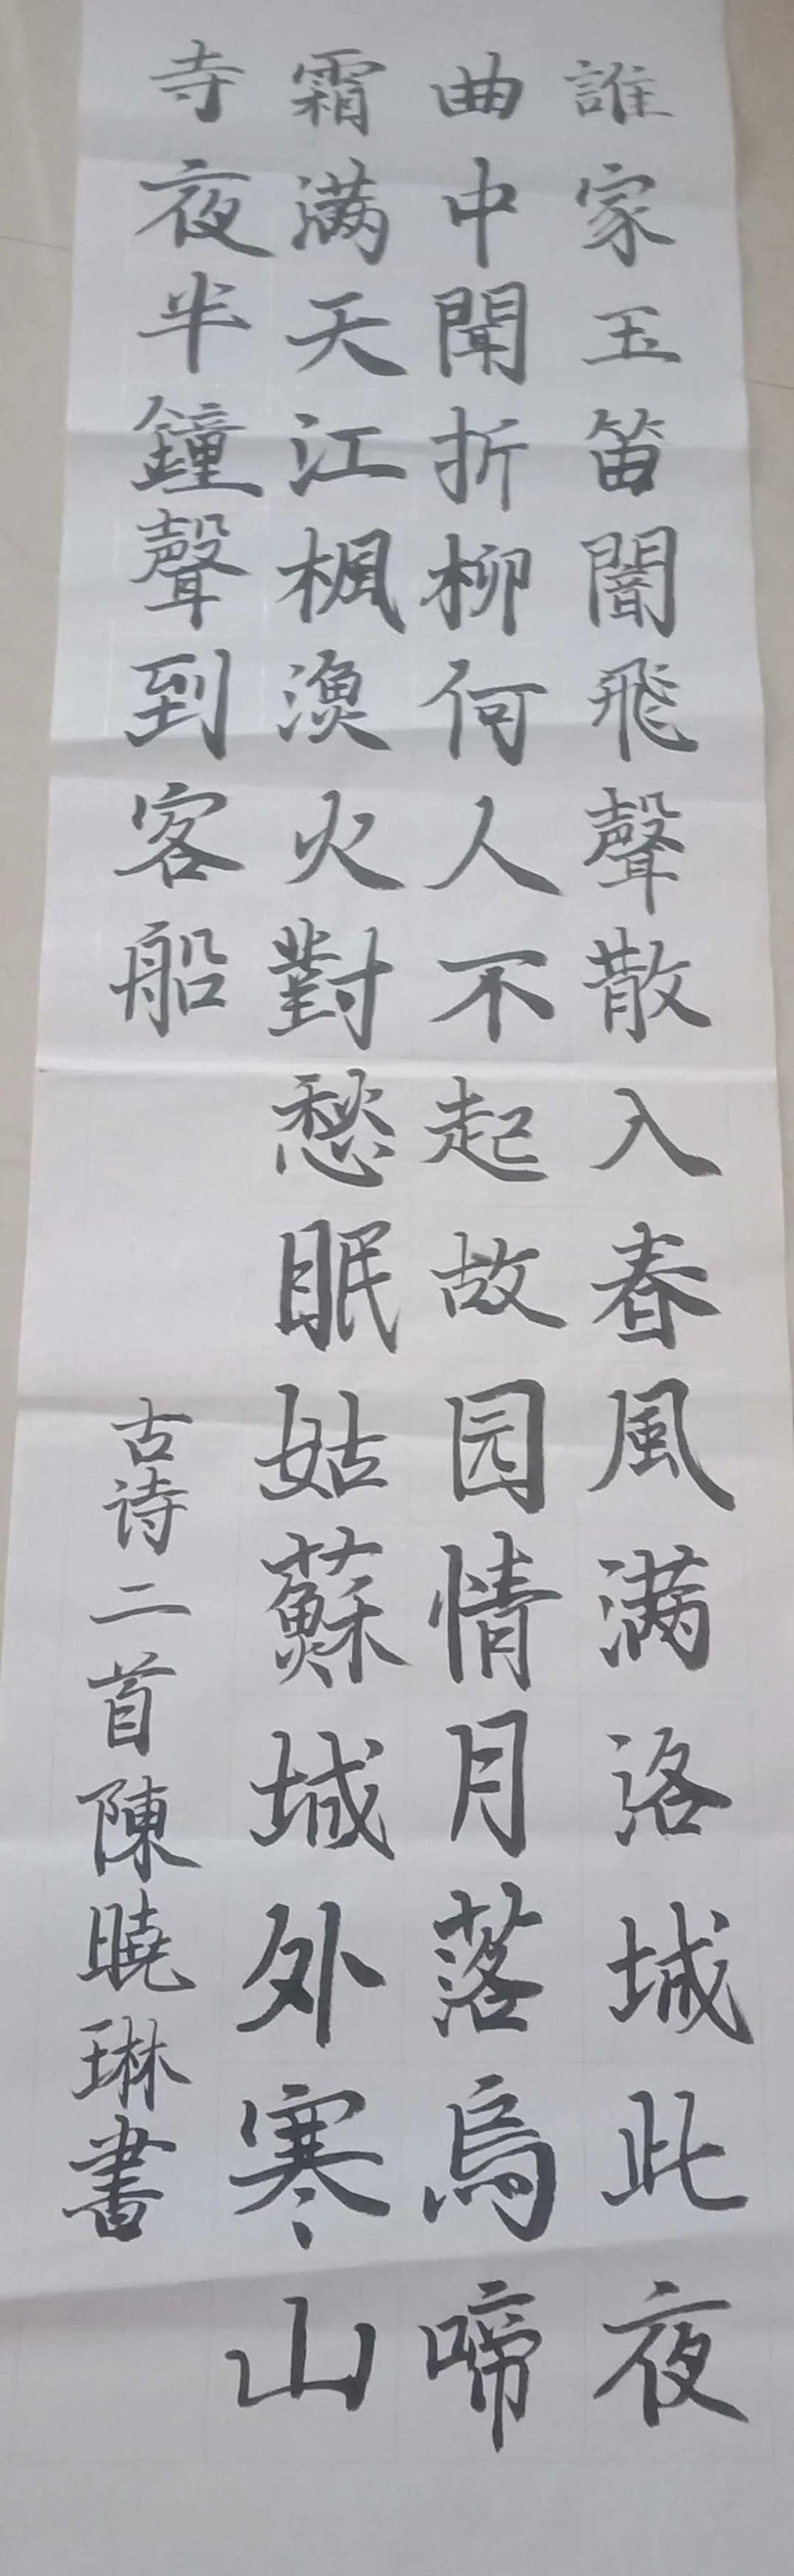 誰家玉笛闇飛聲散入春風满洛城此夜
曲中聞折柳何人不起故园情月落烏啼
霜满天江楓漁火對愁眠姑蘇城外寒山
寺夜半鐘聲到客船
古诗二首陳曉琳書